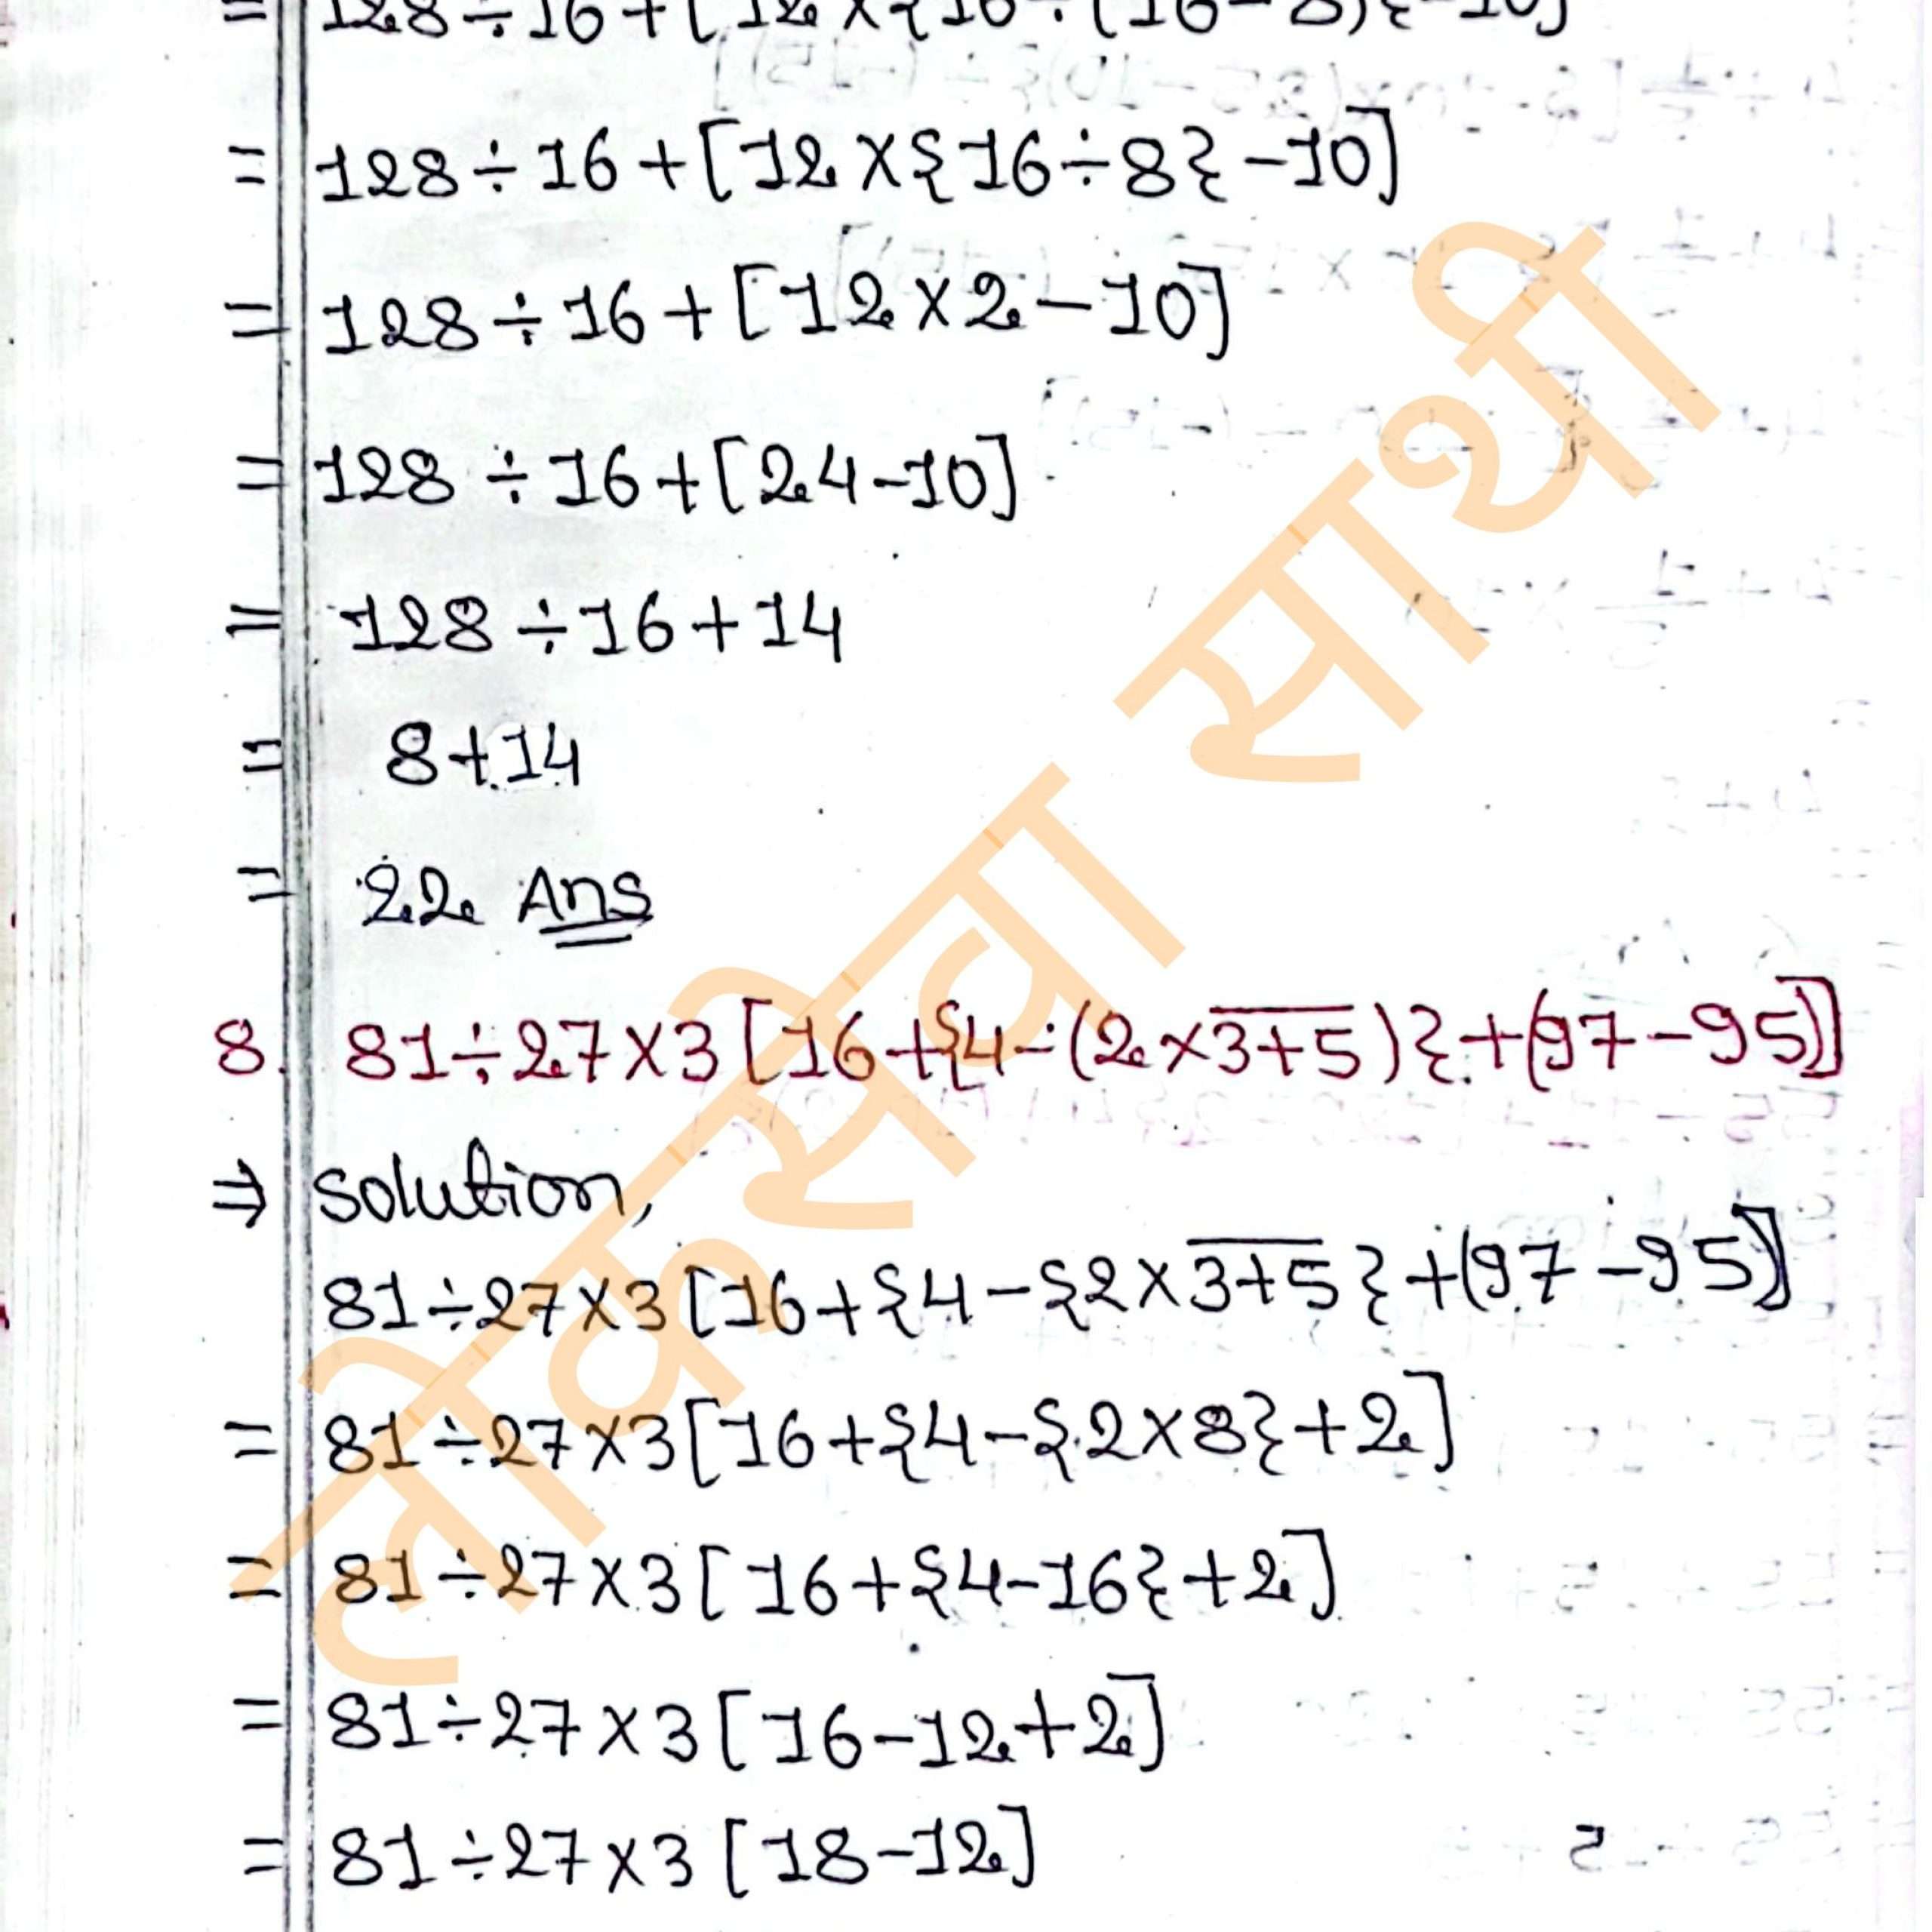 = 128÷16+[12×{16÷(16-8)}-10]
= 128÷16+[12×{16÷8}-10]
= 128÷16+[12×2-10]
= 128÷16+[24-10]
= 128÷16+14
= 8+14
= 22 Ans
8. 81÷27×3[16+{4-(2×3+5)}+(97-95)]
⇒ solution,
81÷27×3[16+{4-{2×3+5}+(97-95)]
= 81÷27×3[16+{4-{2×8}+2]
= 81÷27×3[16+{4-16}+2]
= 81÷27×3[16-12+2]
= 81÷27×3[18-12]
लोक सेवा साथी